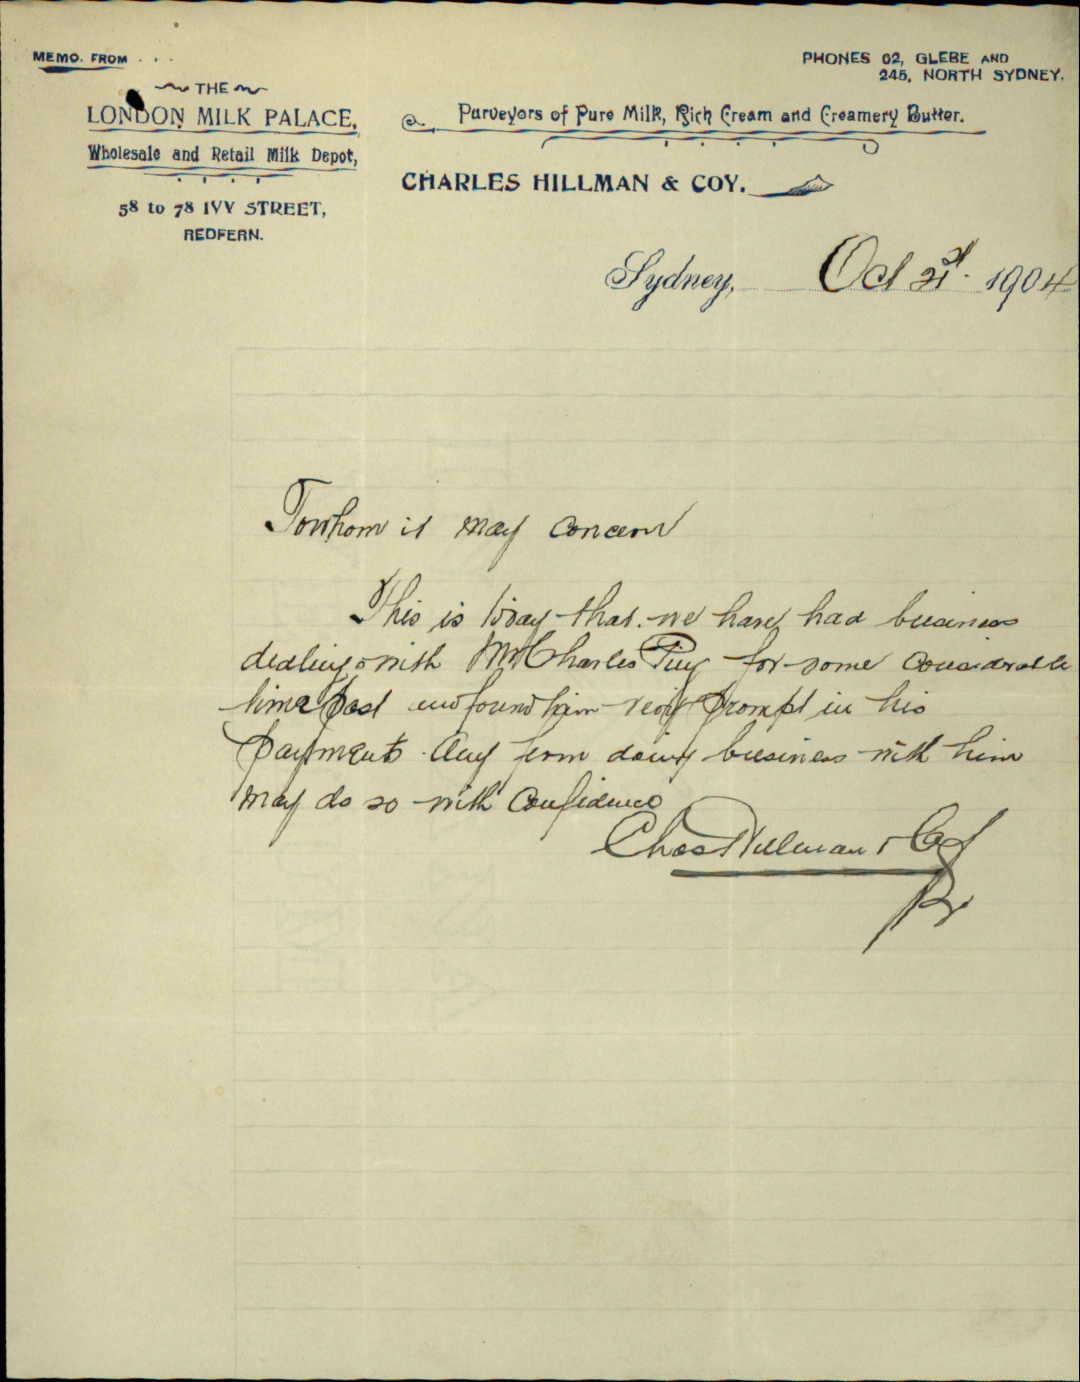 MEMO. FROM . . .
PHONES 62, GLEBE AND
245, NORTH SYDNEY.
THE
LONDON MILK PALACE,
Wholesale and Retail Milk Depot,
58 to 78 IVY STREET,
REDFERN.
Purveyors of Pure Milk, Rich Cream and Creamery Butter.
CHARLES HILLMAN & COY.
Sydney, Oct 21st 1904
To whom it may concern
This is to say that we have had business
dealings with Mr Charles for some considerable
time past and found him very prompt in his
payments Any firm doing business with him
may do so with confidence
Chas Hillman & Co